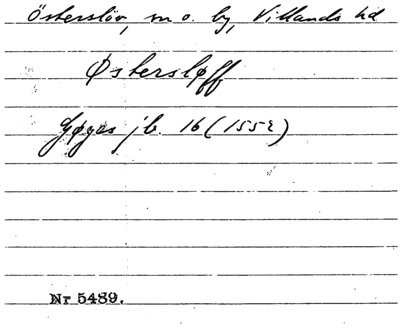 Österslöv, sn o. by, Villands hd
Østersløff
Gøyes jb. 16 (1552)
Nr 5489.